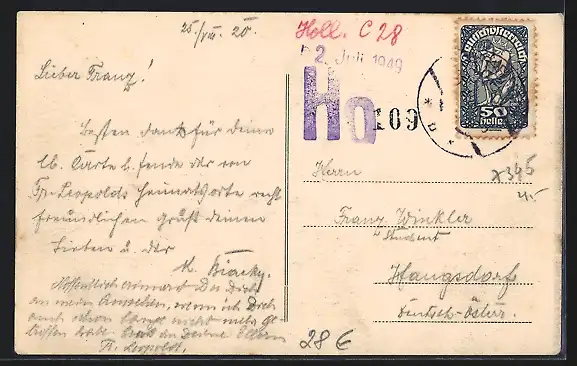 25./VIII. 20.
Lieber Franz!
Besten Dank für deine
lb. Karte u. sende dir von
Fr. Leopolds Heimatsorte recht
freundlichen Gruß deinen
Lieben u. dir
Hoffentlich erinnerst Du Dich
an mein Aussehen, wenn ich Dich
auch schon nicht mehr
habe. Gruß an Deine Eltern
Fr. Leopold.
Holl. C 28
2. Juli 1949
Ho
109
Deutschösterreich
50
Heller
Herrn
Franz Winkler
Student
Hangsdorf
Deutsch-Östur.
7345
4.-
28 €